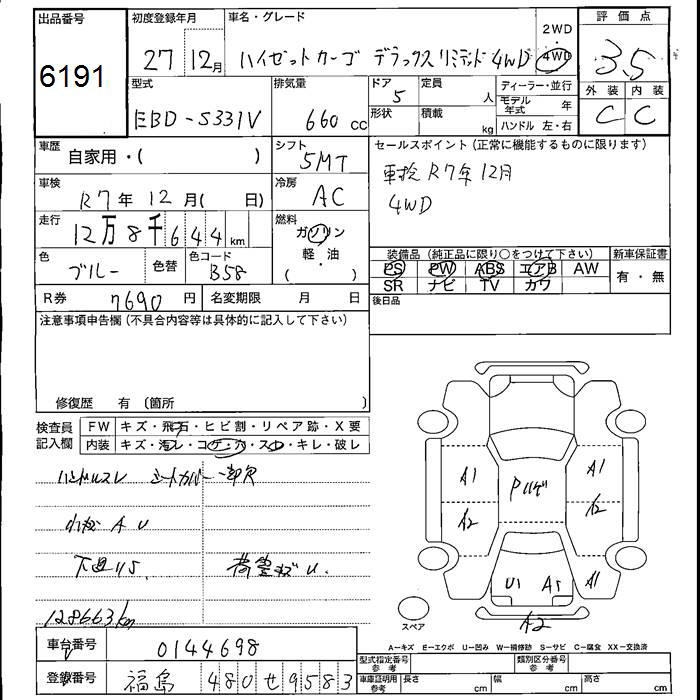 出品番号 初度登録年月 車名・グレード 2WD・4WD 評価点
6191 27 12月 ハイゼットカーゴ デラックスリミテッド 4WD 3.5
型式 排気量 ドア 定員 ディーラー・並行 外装 内装
EBD-S331V 660 cc 5 人 モデル年式 年 C C
形状 積載 kg ハンドル 左・右
車歴 自家用・( ) シフト 5MT セールスポイント(正常に機能するものに限ります)
車検 R7年12月( 日) 冷房 AC 車検R7年12月
4WD
走行 12万8千644km 燃料 ガソリン 軽・油 ( )
装備品(純正品に限り○をつけて下さい) 新車保証書
色 ブルー 色替 色コード B58
PS PW ABS エアB AW 有・無
SR ナビ TV カワ
R券 7690円 名変期限 月 日 後日品
注意事項申告欄(不具合内容等は具体的に記入して下さい)
修復歴 有 (箇所 )
検査員記入欄 FW キズ・飛石・ヒビ割・リペア跡・X要
内装 キズ・汚レ・コゲ・穴・スレ・キレ・破レ
ハンドルスレ シートカバー一部欠
小傷 A U
下廻りS 荷室キズU
128663km
A1 A2 A1 A2 A1 U1 A2
スペア
A-キズ E-エクボ U-凹み W-補修跡 S-サビ C-腐食 XX-交換済
車台番号 0144698
登録番号 福島 480 せ 9583
型式指定番号 参考 類別区分番号 参考
車庫証明用 参考 長さ cm 幅 cm 高さ cm